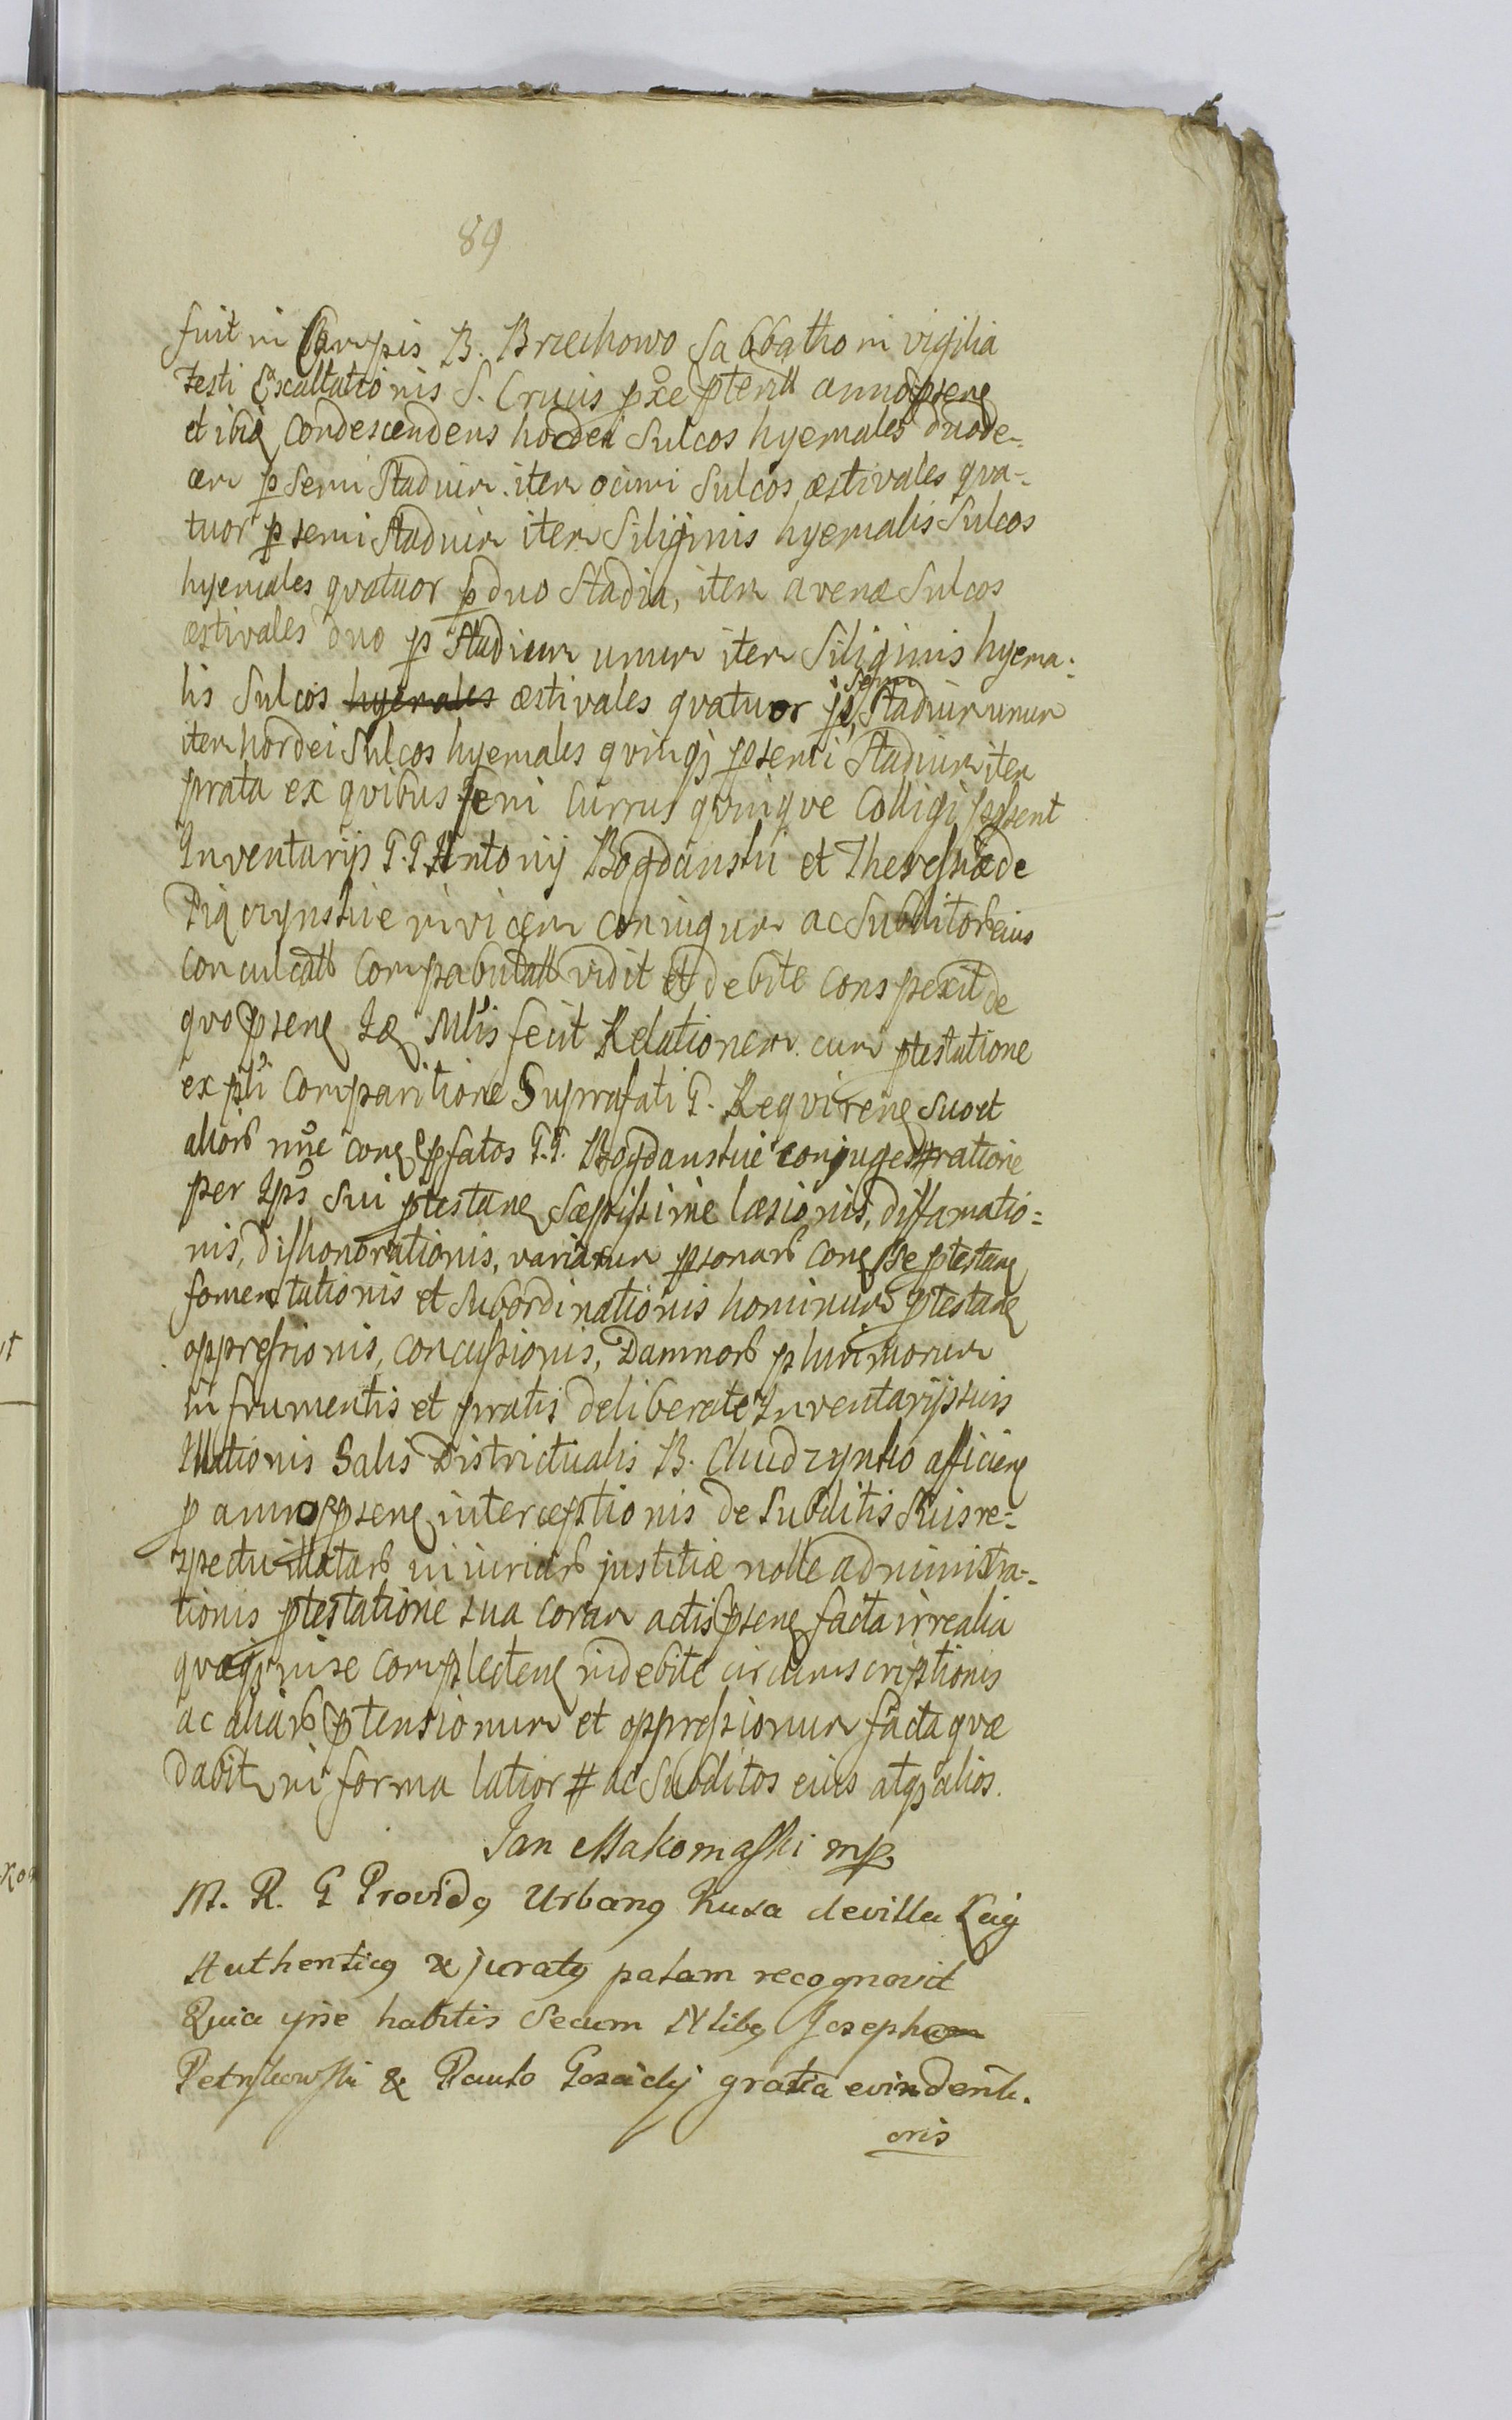 89
fuit in Campis B. Brzechowo Sabbatho in vigilia
Festi Exaltationis S. Crucis pxe pterit anno psenę
et ibiq Condescendens hordei Sulcos hyemales duode-
cem p semi Stadium. item ocimi Sulcos æstivales qva-
tuor p semi Stadium item Siliginis hyemalis Sulcos
hyemales qvatuor p duo Stadia, item avenæ Sulcos
æstivales duo p Stadium unum item Siliginis hyema-
lis Sulcos hyemales æstivales qvatuor p semi Stadium unum
item hordei Sulcos hyemales qvinqȝ p semi Stadium item
prata ex qvibus feni Currus qvinqve Colligi possent
Inventarijs G.G. Antonij Bogdanski et Theressiæ de
invicem coniugum ac Subditorȝ eius
conculcatȝ vidit et debite conspexit de
qvo psenę fecit Relationem cum ptestatione
ex pti Comparitione Suprafati G. Reqvirenę suo et
aliorȝ nõe conę pfatos G.G. Bogdanskie conjuges # ratione
per Ipš sui ptestanę Sæpissime læsionis, diffamatio=
nis, dishonorationis, variarum psonarȝ conę se ptestanę
fomentationis et Subordinationis hominum ptestanę
oppressionis, concussionis, Damnorȝ plurimorum
in frumentis et pratis deliberate Inventarijs suis
Salis Districtualis B. Chudzynko afficienę
p anno psenę interceptionis de Subditis Suis re=
spectu illatarȝ iniuriarȝ justitiæ nolle administra-
tionis ptestatione sua coram actis psenę facta irrealia
qvæqȝ in se complectenę indebite circumscriptionis
ac aliarȝ ptensionum et oppressionum facta qvæ
dabit in forma latior # ac Subditos eius atqȝ alios.
Jan Makomaski mp.
M. R. G Providꝯ Urbanꝯ Kusa de villa
Authenticꝯ & juratꝯ palam recognovit
Quia ipse habitis Secum Nlibꝯ Josepho
Petrykowski & Paulo Gozdij gratia evindenti-
oris